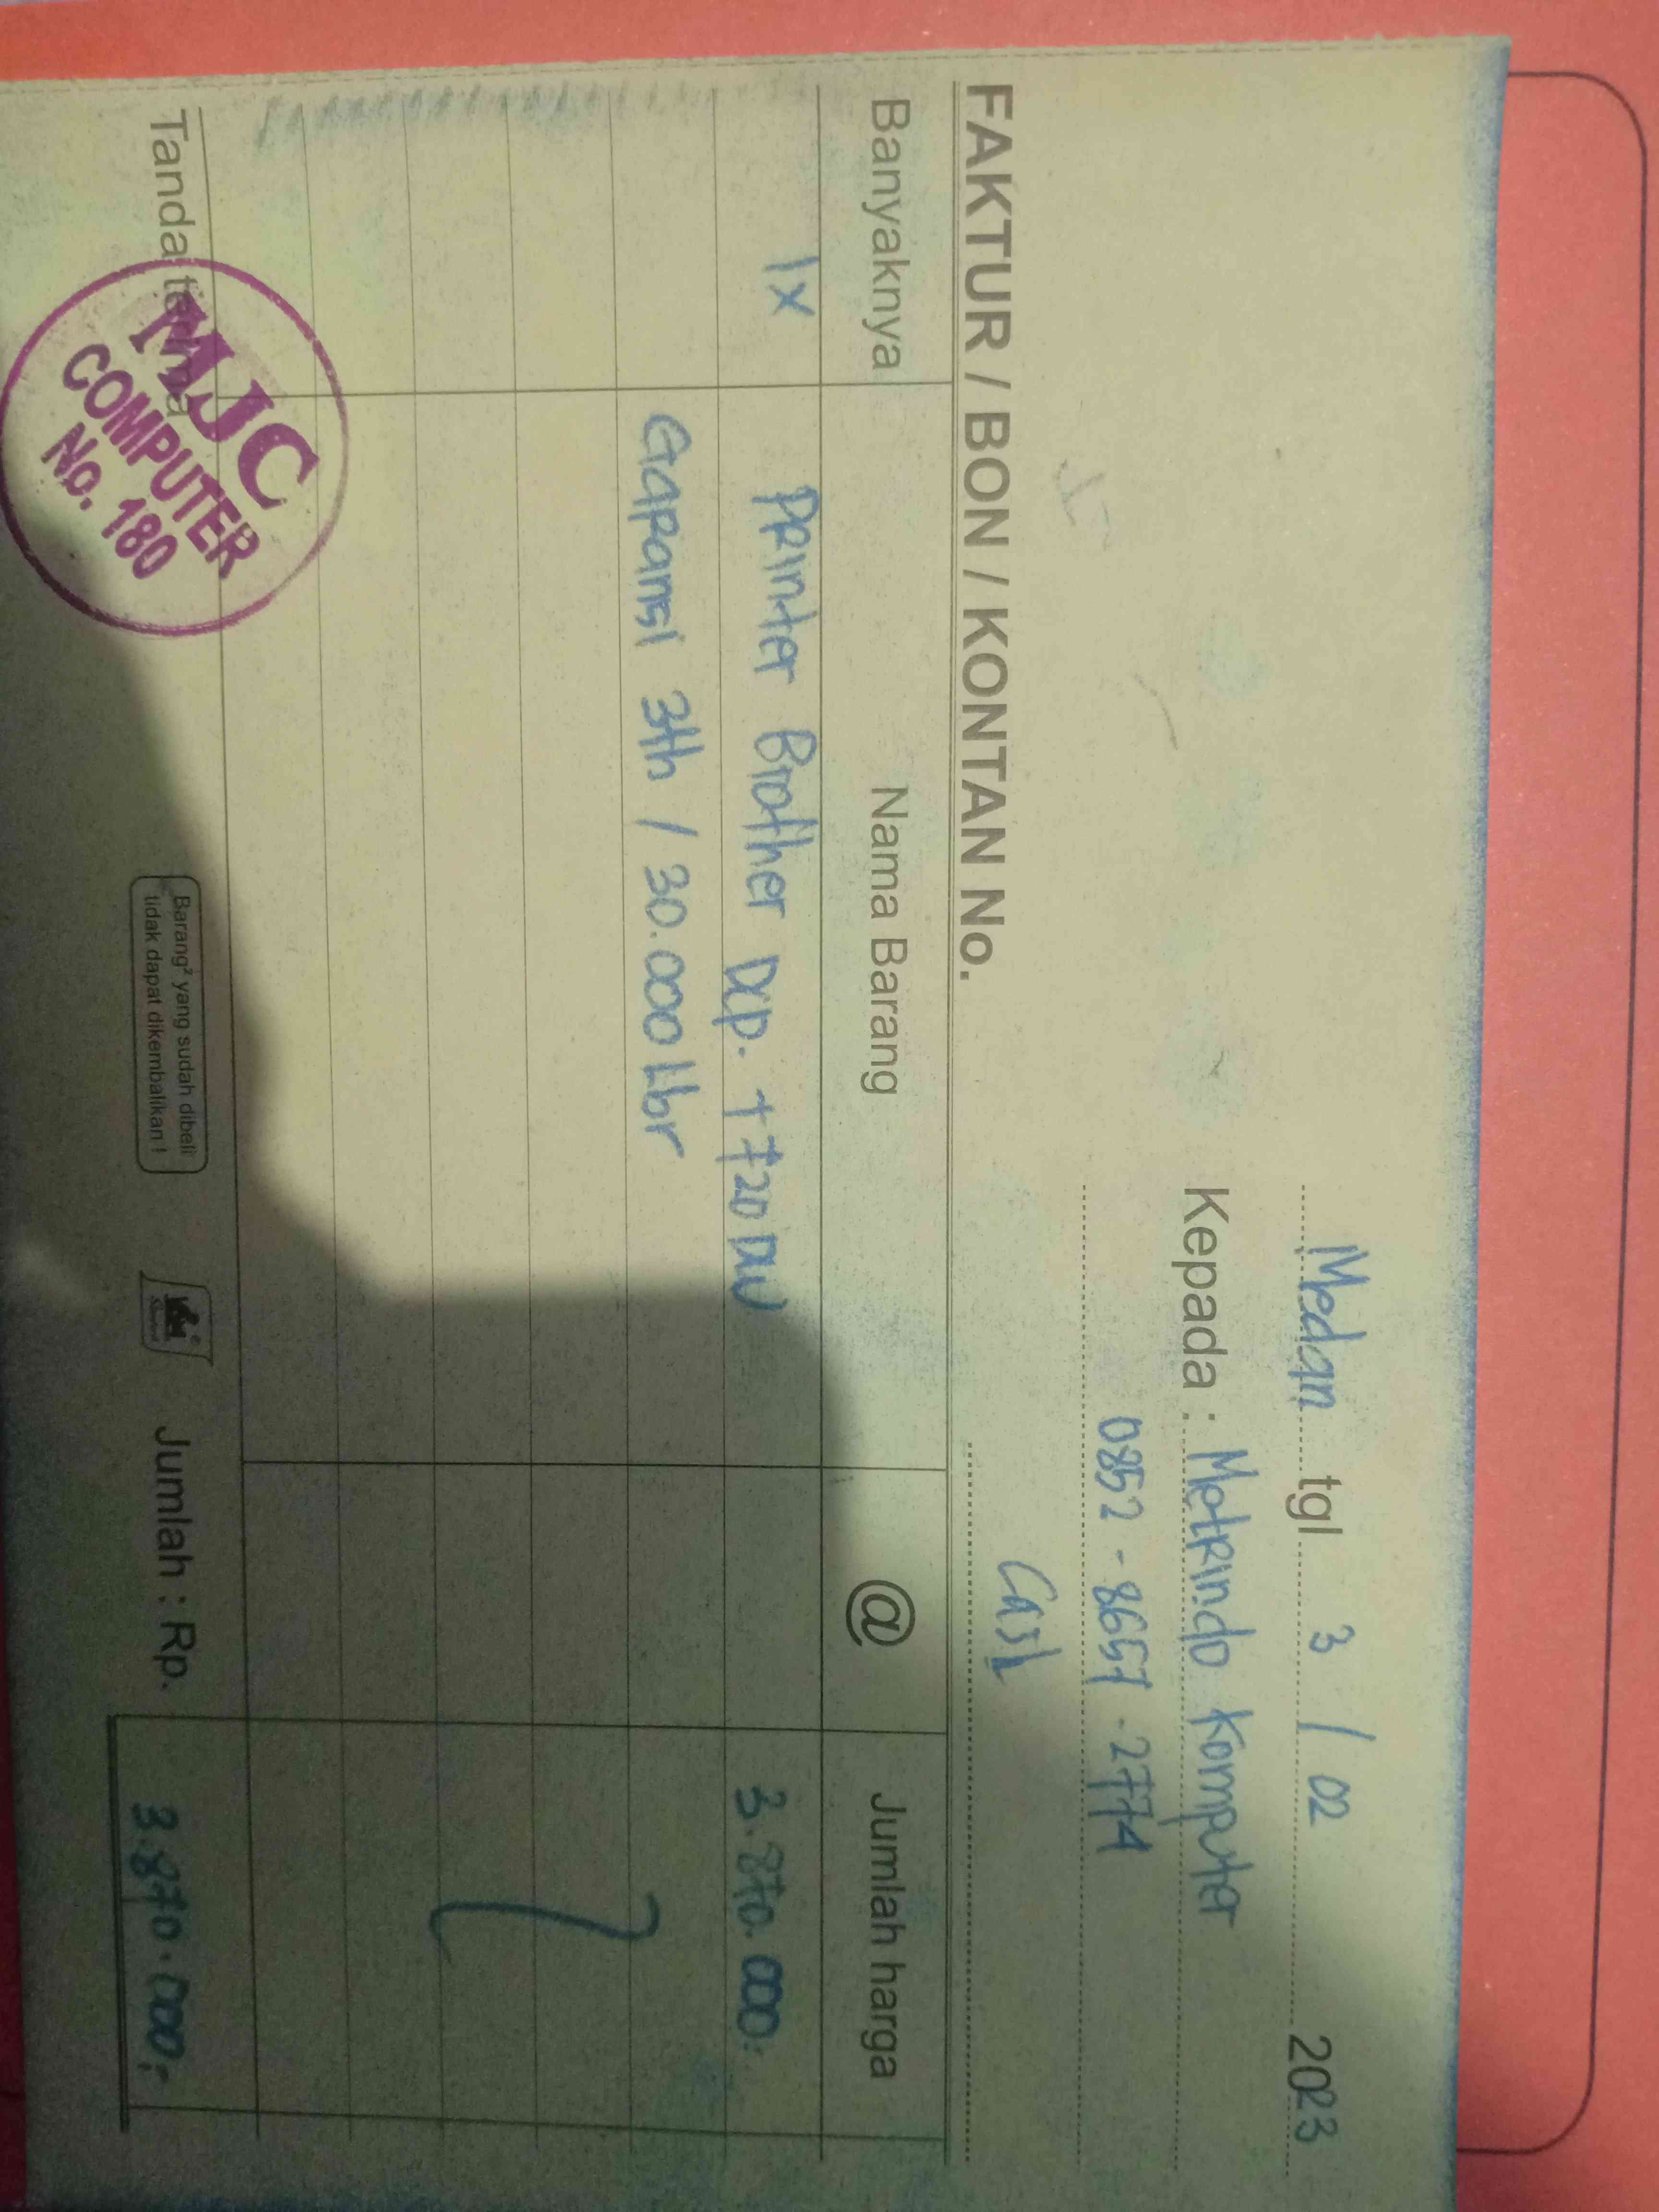 Medan tgl 3 / 02 2023
Kepada : Metrindo Komputer
0852 - 8657 - 2774
Cash
FAKTUR / BON / KONTAN No.
Banyaknya Nama Barang @ Jumlah harga
1x Printer Brother DCP. T720DW 3.870.000.-
Garansi 3th / 30.000 Lbr
Tanda terima
MJC
COMPUTER
No. 180
Barang² yang sudah dibeli
tidak dapat dikembalikan !
Jumlah : Rp. 3.870.000,-